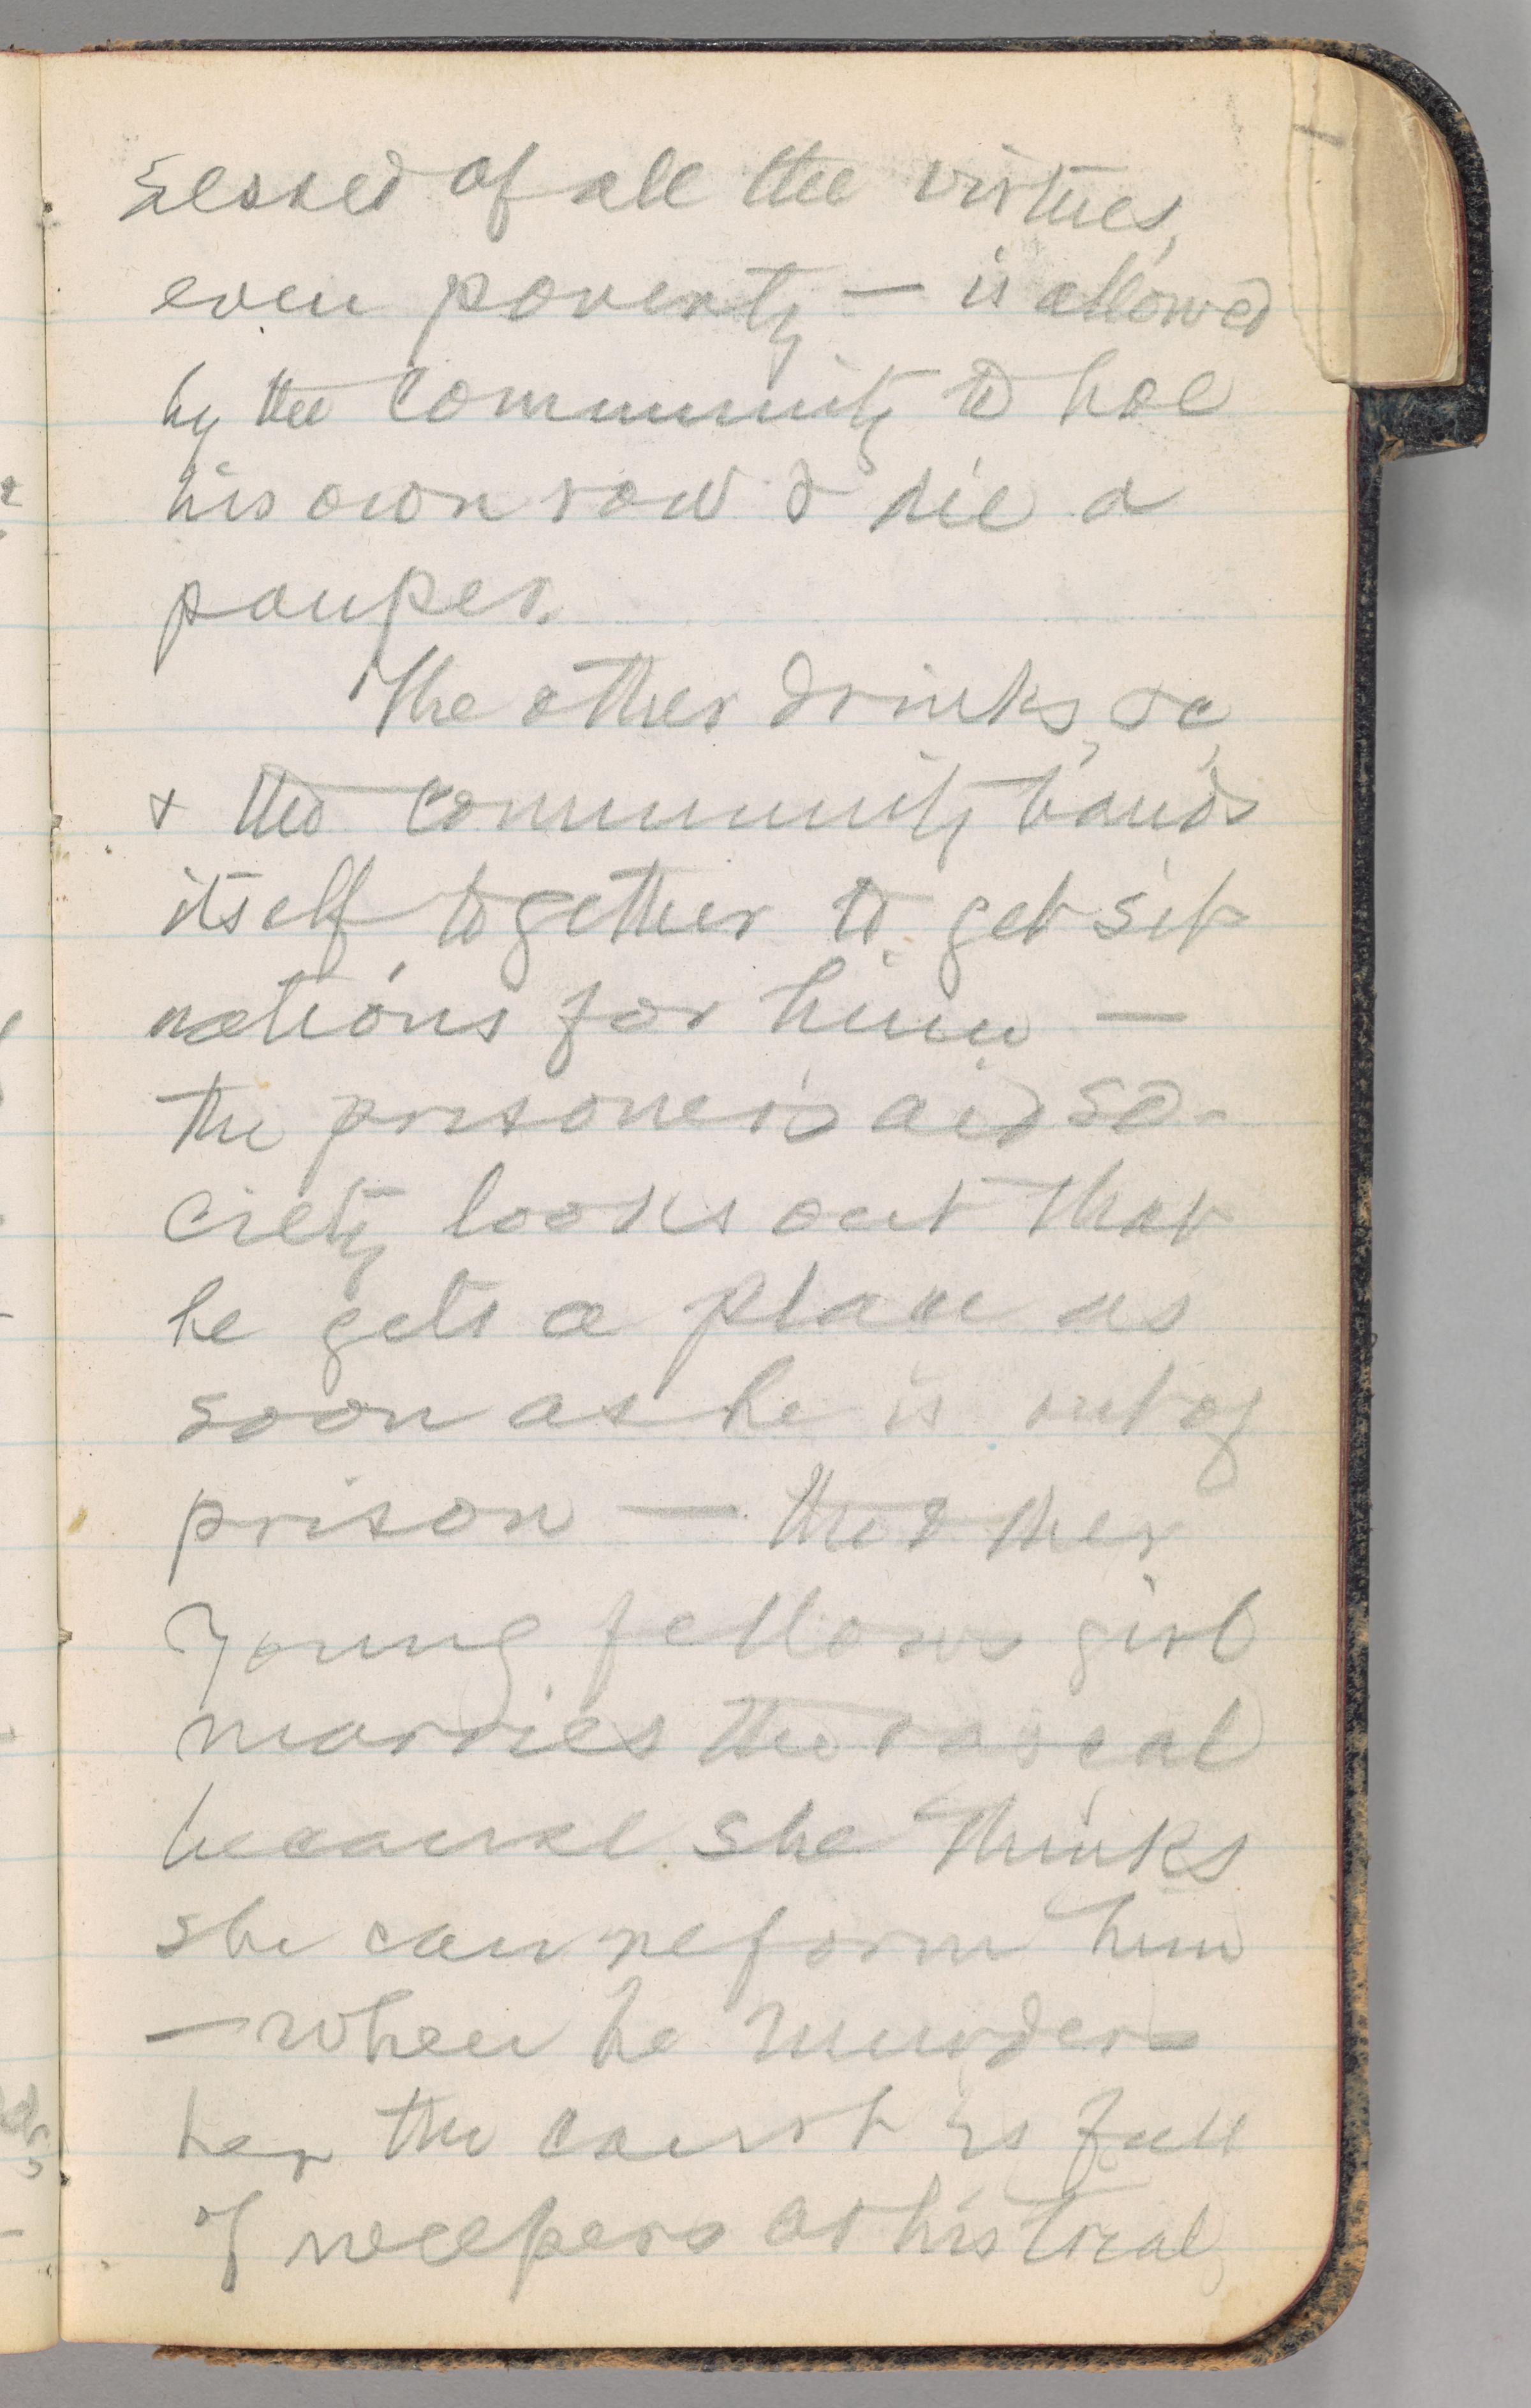 sessed of all the virtues,
even poverty — is allowed
by the community to hoe
his own row & die a
pauper.
The other drinks, &c,
& the community bands
itself together to get sit-
uations for him —
the prisoner's aid so-
ciety looks out that
he gets a place as
soon as he is out of
prison — the other
young fellows girl
marries the rascal
because she thinks
she can reform him
— when he murders
her the court is full
of weepers at his trial,